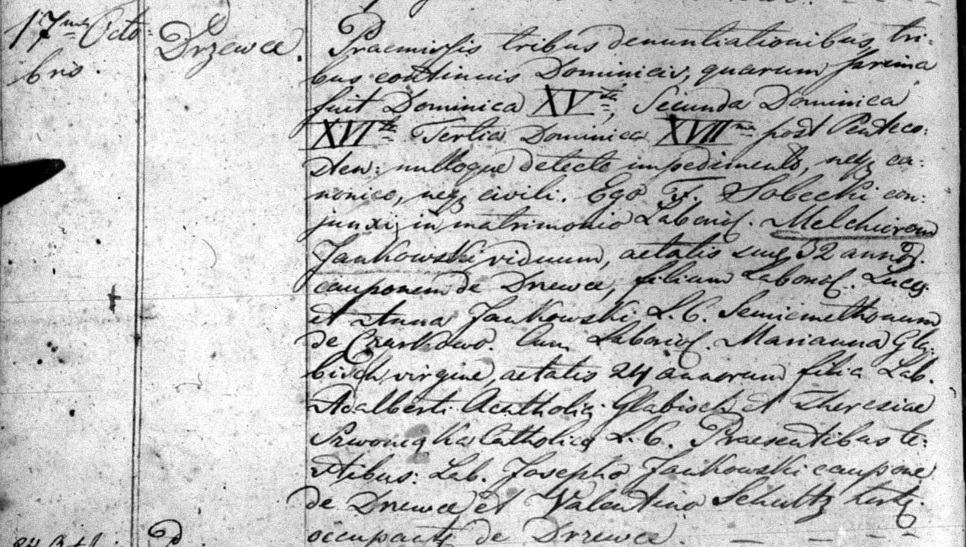 17ma Octo:
bris.
Drzewce.
Praemissis tribus denuntiationibus, tri-
bus continuis Dominicis, quarum prima
fuit Dominica XVta, Secunda Dominica
XVIta Tertia Dominica XVIIma post Penteco:
sten: nulloque detecto impedimento, neq ca:
nonico, neq civili. Ego F. Sobecki con:
junxi in matrimonio Laborios. Melchiorem
Jankowski viduum, aetatis suae 32 annor.
cauponem de Drzewce, filium Laborios. Lucae
et Anna Jankowski L. C. Semicmethonum
de Czarkowo. Cum Laborios. Marianna Gla:
bisch virgine, aetatis 24 annorum filia Lab.
Adalberti Acatholici Glabisch et Theresiae
Catholica L. C. Praesentibus te:
stibus: Lab. Josepho Jankowski caupone
de Drzewce et Valentino Schultz
de Drzewce.